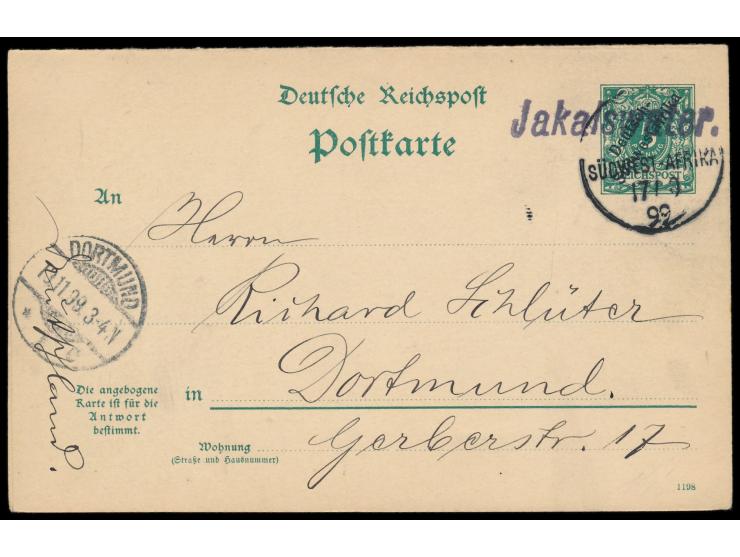 Deutsche Reichspost
Postkarte
Jakalswater.
SÜDWEST-AFRIKA
REICHSPOST
99
An
Herrn
Richard Schlüter
in Dortmund.
Gerberstr. 17
DORTMUND
11.99.3-4N
Die angebogene
Karte ist für die
Antwort
bestimmt.
Wohnung
(Straße und Hausnummer)
1198